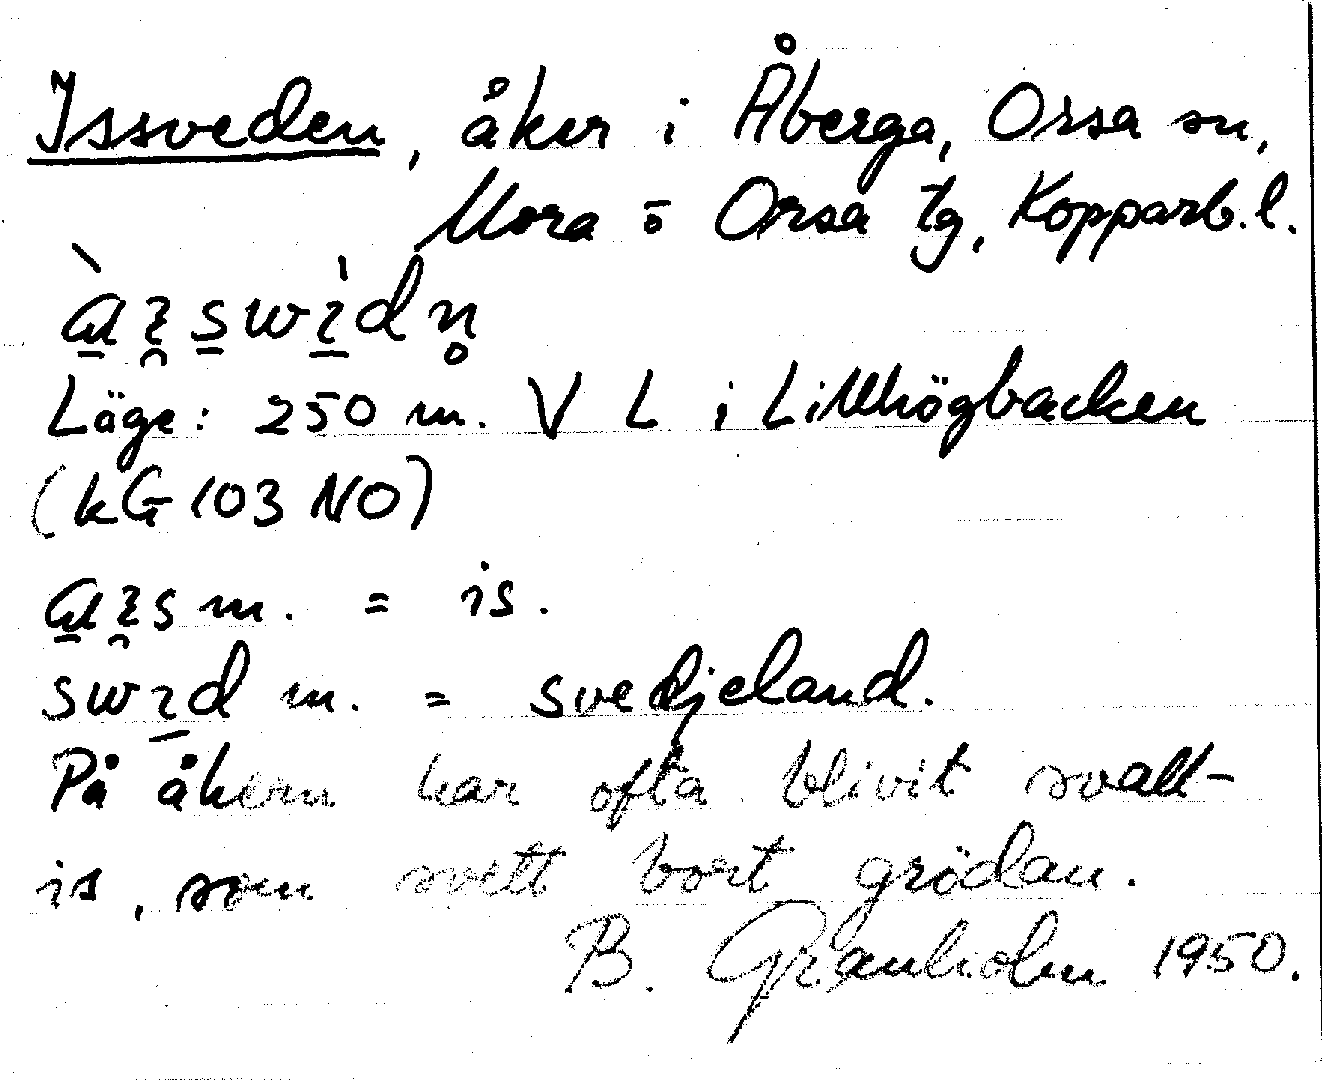 Issveden, åker i Åberga, Orsa sn,
Mora o Orsa tg, Kopparb. l.
Läge: 250 m. V L i Lillhögbacken
(kG 103 NO)
m. = is.
m. = svedjeland.
På åkern har ofta blivit svall-
is, som svett bort grödan.
B. Granholm 1950.